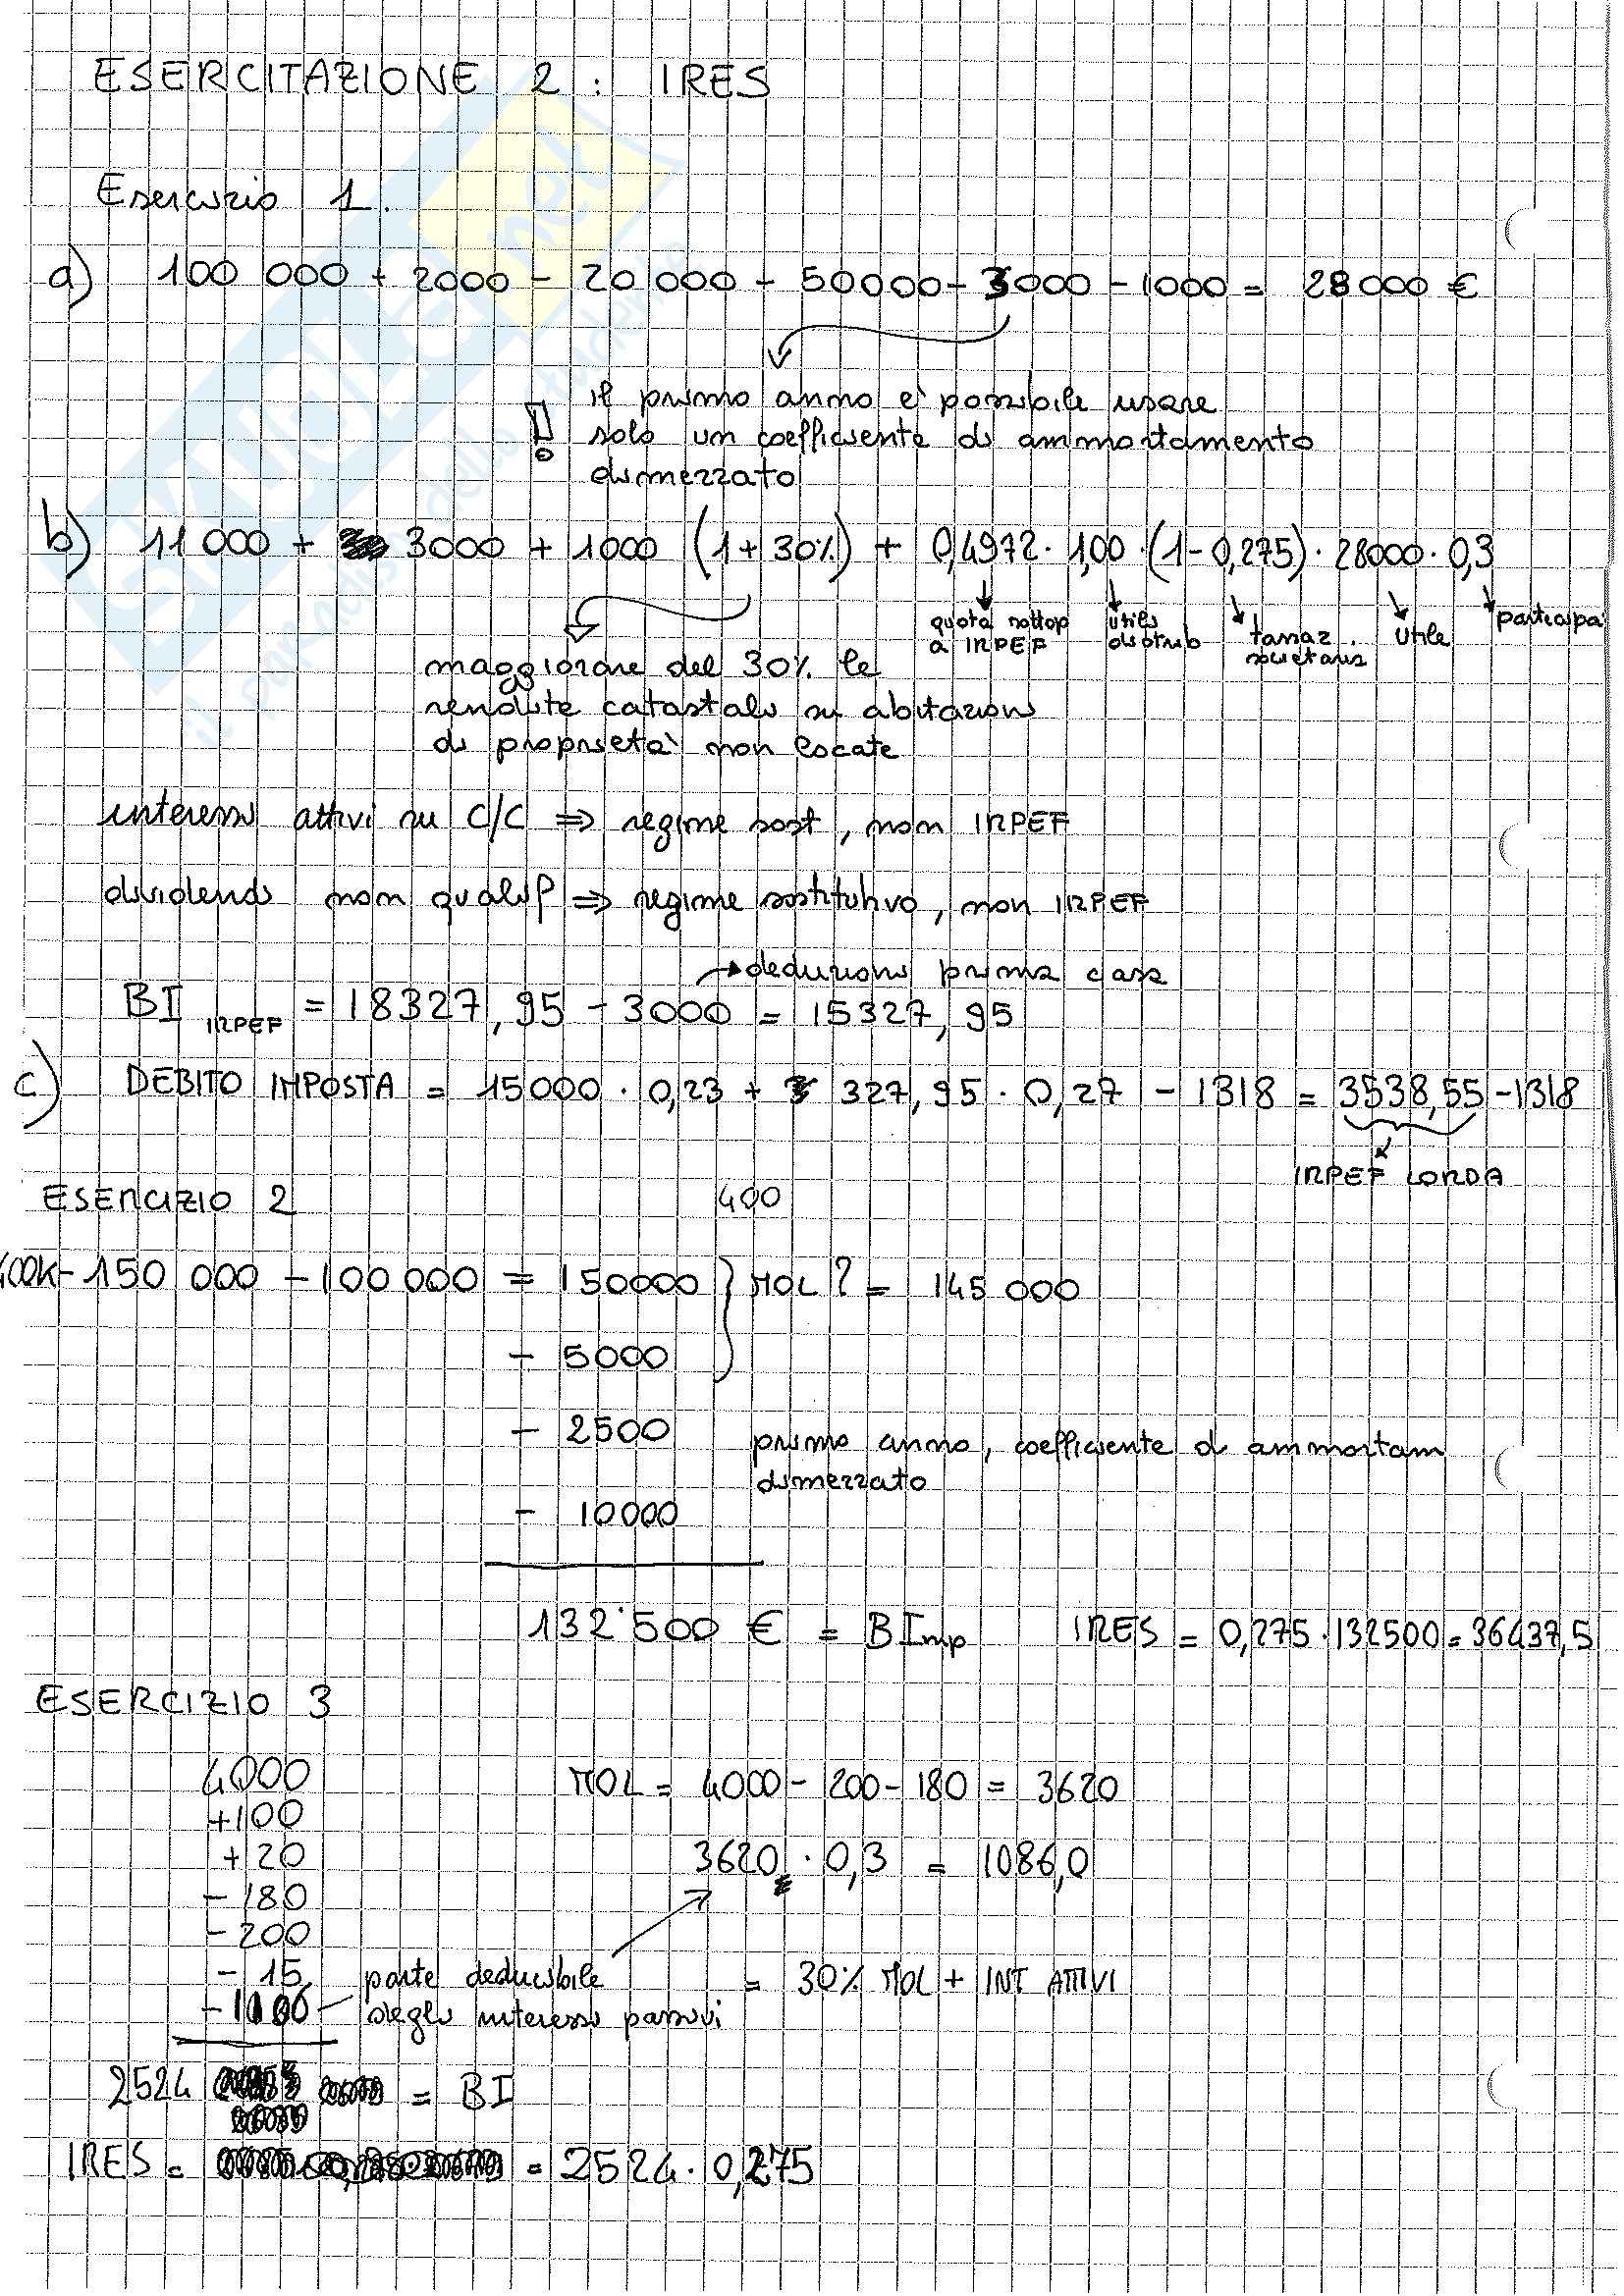 ESERCITAZIONE 2 : IRES
Esercizio 1.
a) 100 000 + 2000 - 20 000 - 50000 - 3000 - 1000 = 28000 €
! il primo anno e' possibile usare
solo un coefficiente di ammortamento
dimezzato
b) 11 000 + 3000 + 1000 (1+30%) + 0,4972 · 1,00 · (1-0,275) · 28000 · 0,3
quota sottop utili tassaz. utile partecipa
a IRPEF distrib societaria
maggiorare del 30% le
rendite catastali su abitazioni
di proprietà non locate
interessi attivi su C/C ⇒ regime sost, non IRPEF
dividendi non qualif ⇒ regime sostitutivo, non IRPEF
→ deduzioni prima casa
BI IRPEF = 18327,95 - 3000 = 15327,95
c) DEBITO IMPOSTA = 15000 · 0,23 + 327,95 · 0,27 - 1318 = 3538,55 - 1318
IRPEF LORDA
ESERCIZIO 2 400
400k - 150 000 - 100 000 = 150000 } MOL ? = 145 000
- 5000
- 2500 primo anno, coefficiente d ammortam
dimezzato
- 10000
132'500 € = BImp IRES = 0,275 · 132500 = 36437,5
ESERCIZIO 3
4000 MOL = 4000 - 200 - 180 = 3620
+100
+20 3620 · 0,3 = 1086,0
- 180
- 200
- 15 parte deducibile = 30% MOL + INT ATTIVI
degli interessi passivi
2524 = BI
IRES = = 2524 · 0,275